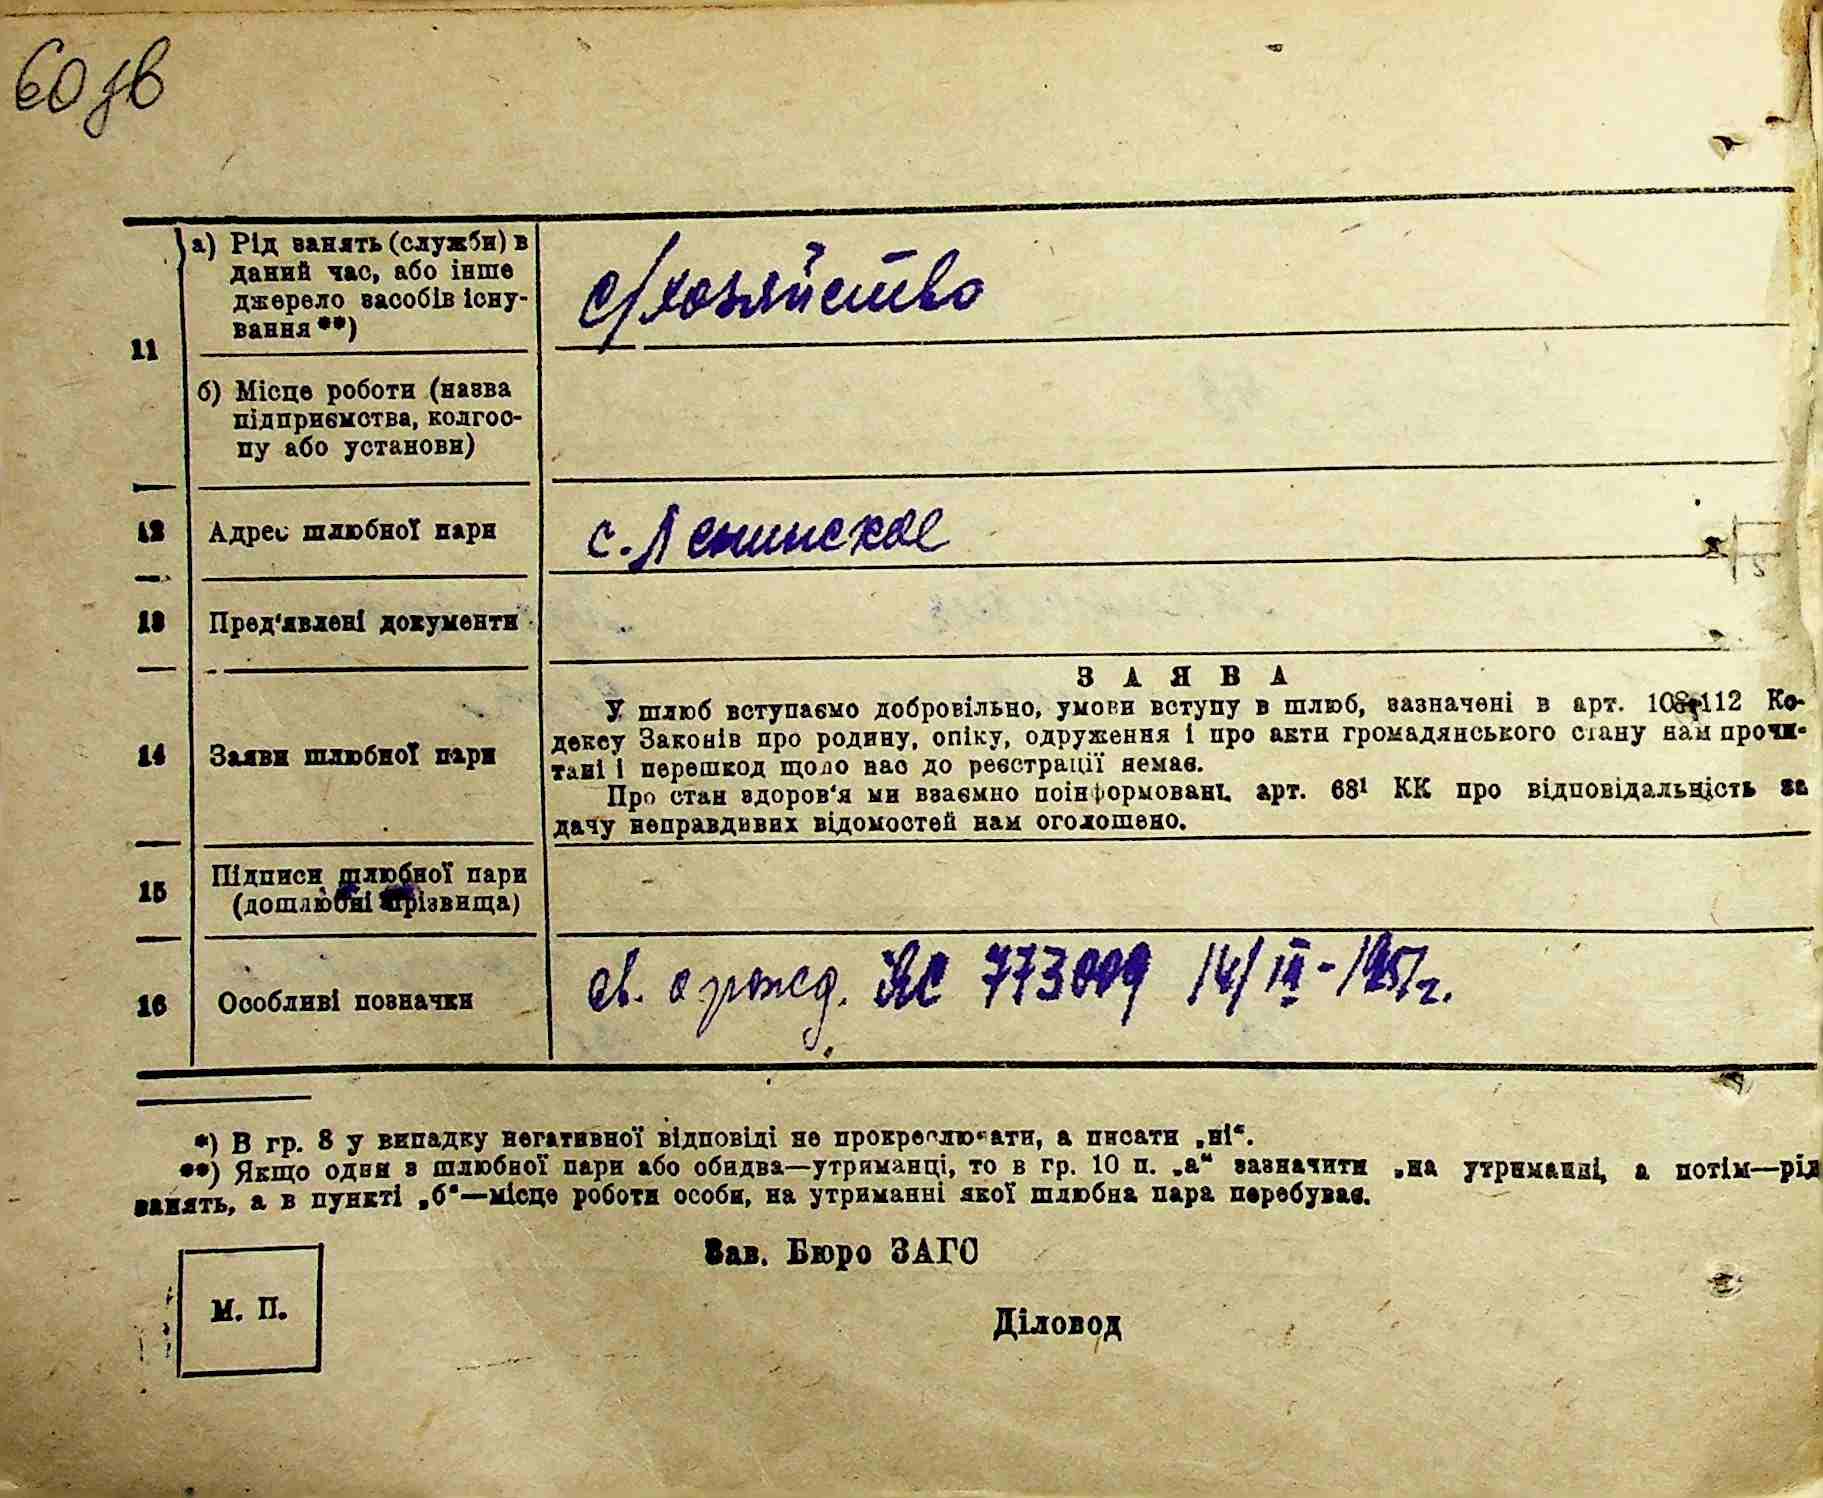 60 зв
а) Рід занять (служби) в
даний час, або інше
джерело засобів існу-
вання **)
с/хозяйство
11
б) Місце роботи (назва
підприємства, колгос-
пу або установи)
12 Адрес шлюбної пари с. Ленинское
13 Пред'явлені документи
ЗАЯВА
У шлюб вступаємо добровільно, умови вступу в шлюб, зазначені в арт. 108-112 Ко-
дексу Законів про родину, опіку, одруження і про акти громадянського стану нам прочи-
тані і перешкод щодо нас до реєстрації немає.
14 Заяви шлюбної пари
Про стан здоров'я ми взаємно поінформовані, арт. 68¹ КК про відповідальність за
дачу неправдивих відомостей нам оголошено.
15 Підписи шлюбної пари
(дошлюбні прізвища)
16 Особливі позначки св. о рожд. ЯС 773009 14/III-1951г.
*) В гр. 8 у випадку негативної відповіді не прокреслювати, а писати „ні“.
**) Якщо один з шлюбної пари або обидва—утриманці, то в гр. 10 п. „а“ зазначити „на утриманні, а потім—рід
занять, а в пункті „б“—місце роботи особи, на утриманні якої шлюбна пара перебуває.
Зав. Бюро ЗАГС
М. П.
Діловод